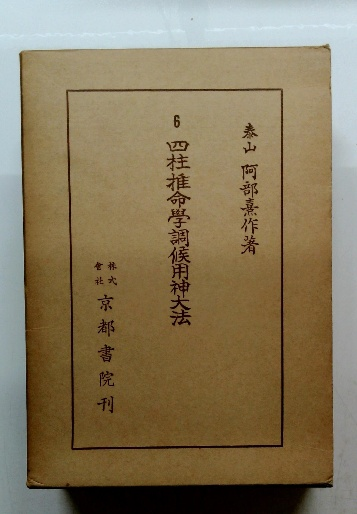 泰山 阿部熹作著
6
四柱推命學調候用神大法
株式會社 京都書院刊